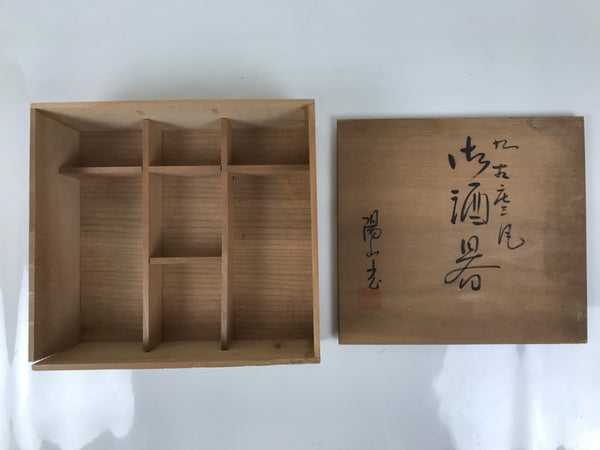 九谷庄三風
御酒器
陽山造